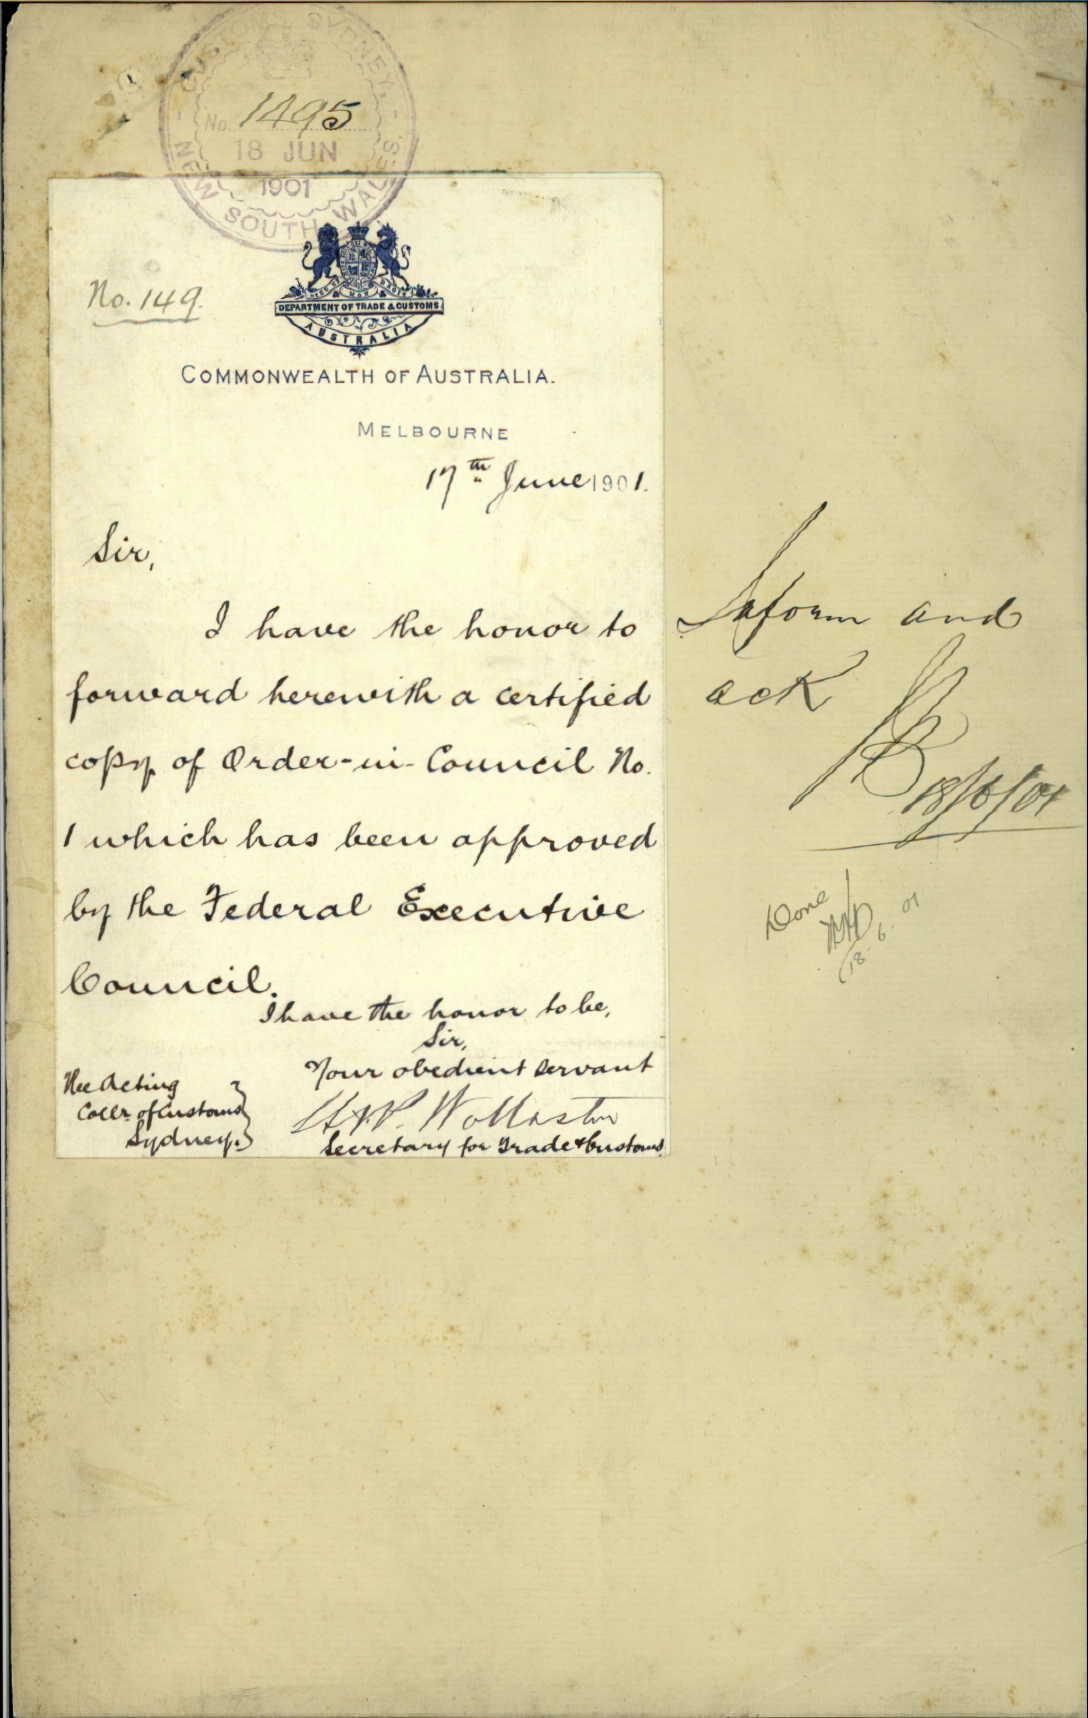 CUSTOMS SYDNEY.
No. 1495
18 JUN
1901
NEW SOUTH WALES
No. 149.
DEPARTMENT OF TRADE & CUSTOMS
AUSTRALIA
COMMONWEALTH OF AUSTRALIA.
MELBOURNE
17th June 1901.
Sir,
I have the honor to
forward herewith a certified
copy of Order-in-Council No.
1 which has been approved
by the Federal Executive
Council.
I have the honor to be,
Sir,
Your obedient servant
H.N.P. Wollaston
Secretary for Trade & Customs
The Acting
Collr. of Customs
Sydney.
Inform and
ack
18/6/01
Done
18.6.01